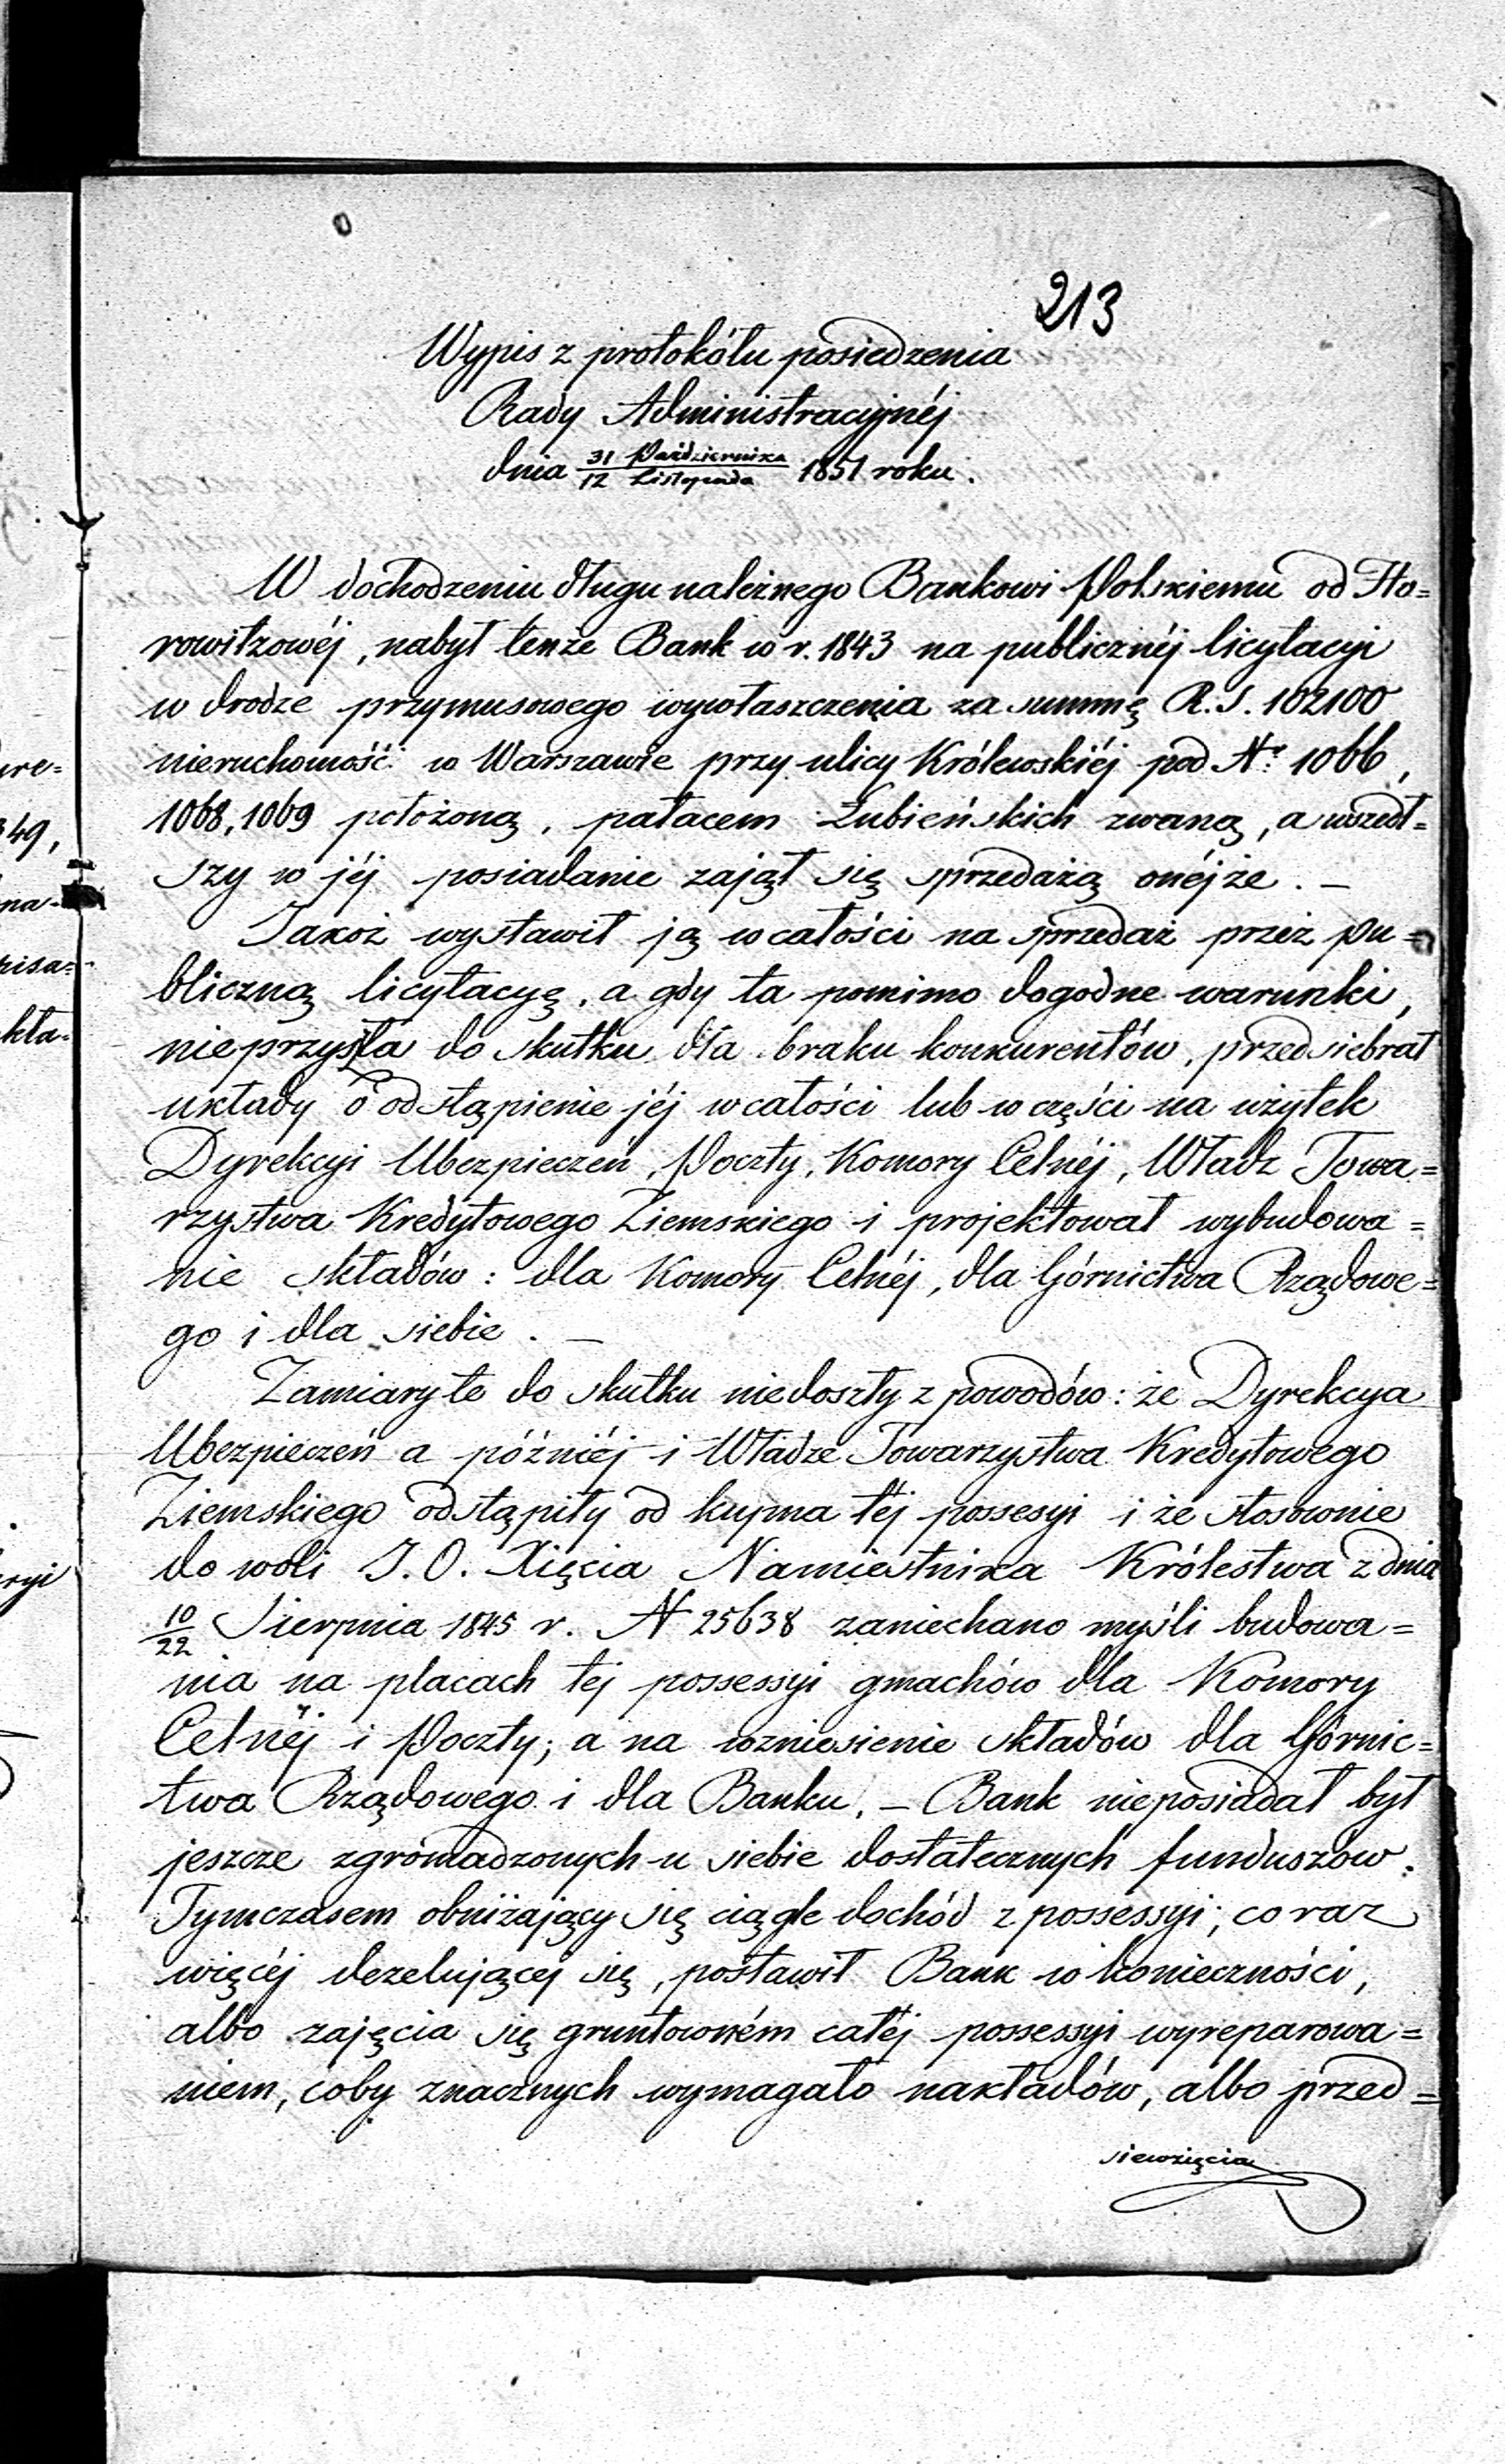 213
Wypis z protokółu posiedzenia
Rady Administracyjnéj
dnia 31 Października / 12 Listopada 1851 roku.
W dochodzeniu długu należnego Bankowi Polskiemu od Ho=
rowitzowéj, nabył tenże Bank w r. 1843 na publicznéj licytacyi
w drodze przymusowego wywłaszczenia za summę R.S. 102100
nieruchomość w Warszawie przy ulicy Królewskiéj pod Nr. 1066,
1068, 1069 położoną, pałacem Łubieńskich zwaną, a wszedł=
szy w jéj posiadanie zajął się sprzedażą onéjże. —
Jakoż wystawił ją w całości na sprzedaż przez pu=
bliczną licytacyę, a gdy ta pomimo dogodne warunki,
nieprzyszła do skutku dla braku konkurentów, przedsiebrał
układy o odstąpienie jéj w całości lub w części na użytek
Dyrekcyi Ubezpieczeń, Poczty, Komory Celnéj, Władz Towa=
rzystwa Kredytowego Ziemskiego i projektował wybudowa=
nie składów: dla Komory Celnéj, dla Górnictwa Rządowe=
go i dla siebie. —
Zamiary te do skutku niedoszły z powodów: że Dyrekcya
Ubezpieczeń a późniéj i Władze Towarzystwa Kredytowego
Ziemskiego odstąpiły od kupna téj possesyi i że stosownie
do woli J.O. Xięcia Namiestnika Królestwa z dnia
10/22 Sierpnia 1845 r. N 25638 zaniechano myśli budowa=
nia na placach tej possessyi gmachów dla Komory
Celnéj i Poczty; a na wzniesienie składów dla Górnic=
twa Rządowego i dla Banku, — Bank nieposiadał był
jeszcze zgromadzonych u siebie dostatecznych funduszów.
Tymczasem obniżający się ciągle dochód z possessyi, coraz
więcéj dezelującej się, postawił Bank w konieczności,
albo zajęcia się gruntowném całéj possessyi wyreparowa=
niem, coby znacznych wymagało nakładów, albo przed=
siewzięcia